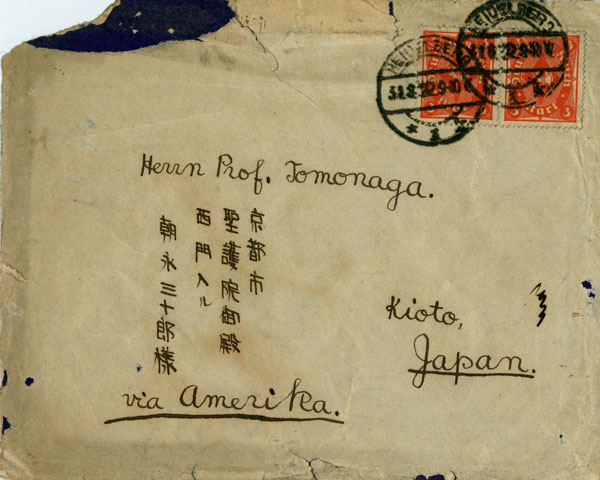 HEIDELBERG
31.8.22.9-10 V
* 1 *
Mark 3
Herrn Prof. Tomonaga.
京都市
聖護院御殿
西門入ル
朝永三十郎様
Kioto,
Japan.
via Amerika.